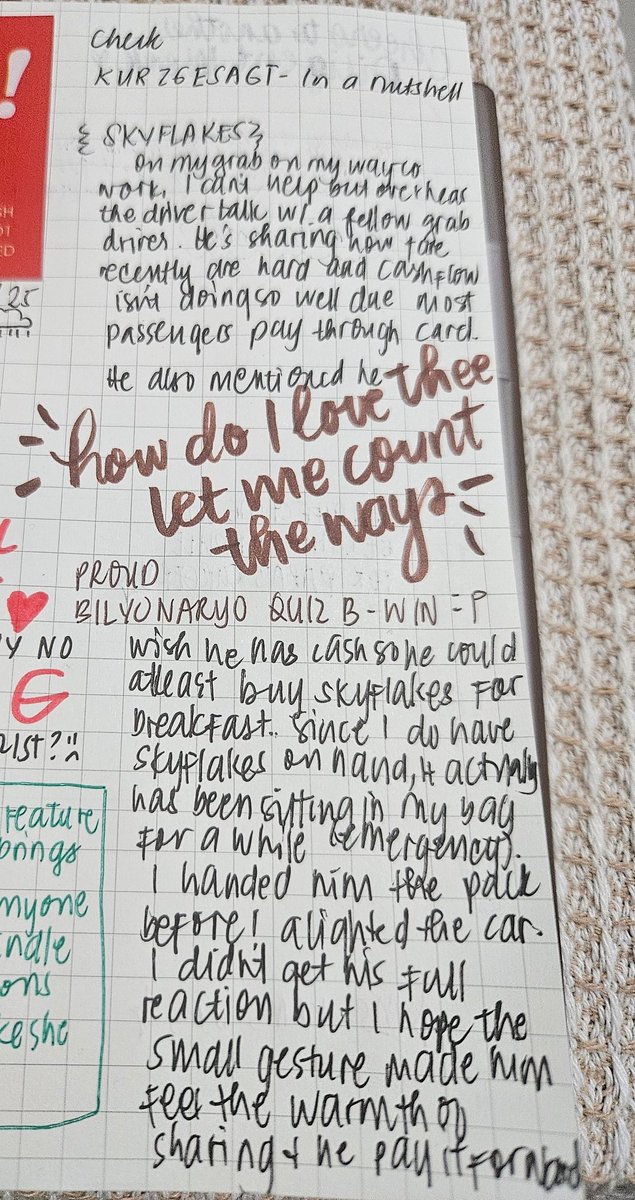 !
SH
OT
ED
25
Check
KURZGESAGT - In a nutshell
{ SKYFLAKES }
On my grab on my way to
work, I can't help but overhear
the driver talk w/ a fellow grab
driver. He's sharing how fare
recently are hard and cashflow
isn't doing so well due most
passengers pay through card.
He also mentioned he
how do I love thee
let me count
the ways
PROUD
BILYONARYO QUIZ B - WIN =P
Y NO
G
21ST?
wish he has cash so he could
atleast buy skyflakes for
breakfast. Since I do have
skyflakes on hand, it actually
has been sitting in my bag
for a while (emergency).
I handed him the pack
before I alighted the car.
I didn't get his full
reaction but I hope the
small gesture made him
feel the warmth of
sharing + he pay it forward
reature
brings
myone
ndle
ons
ke she